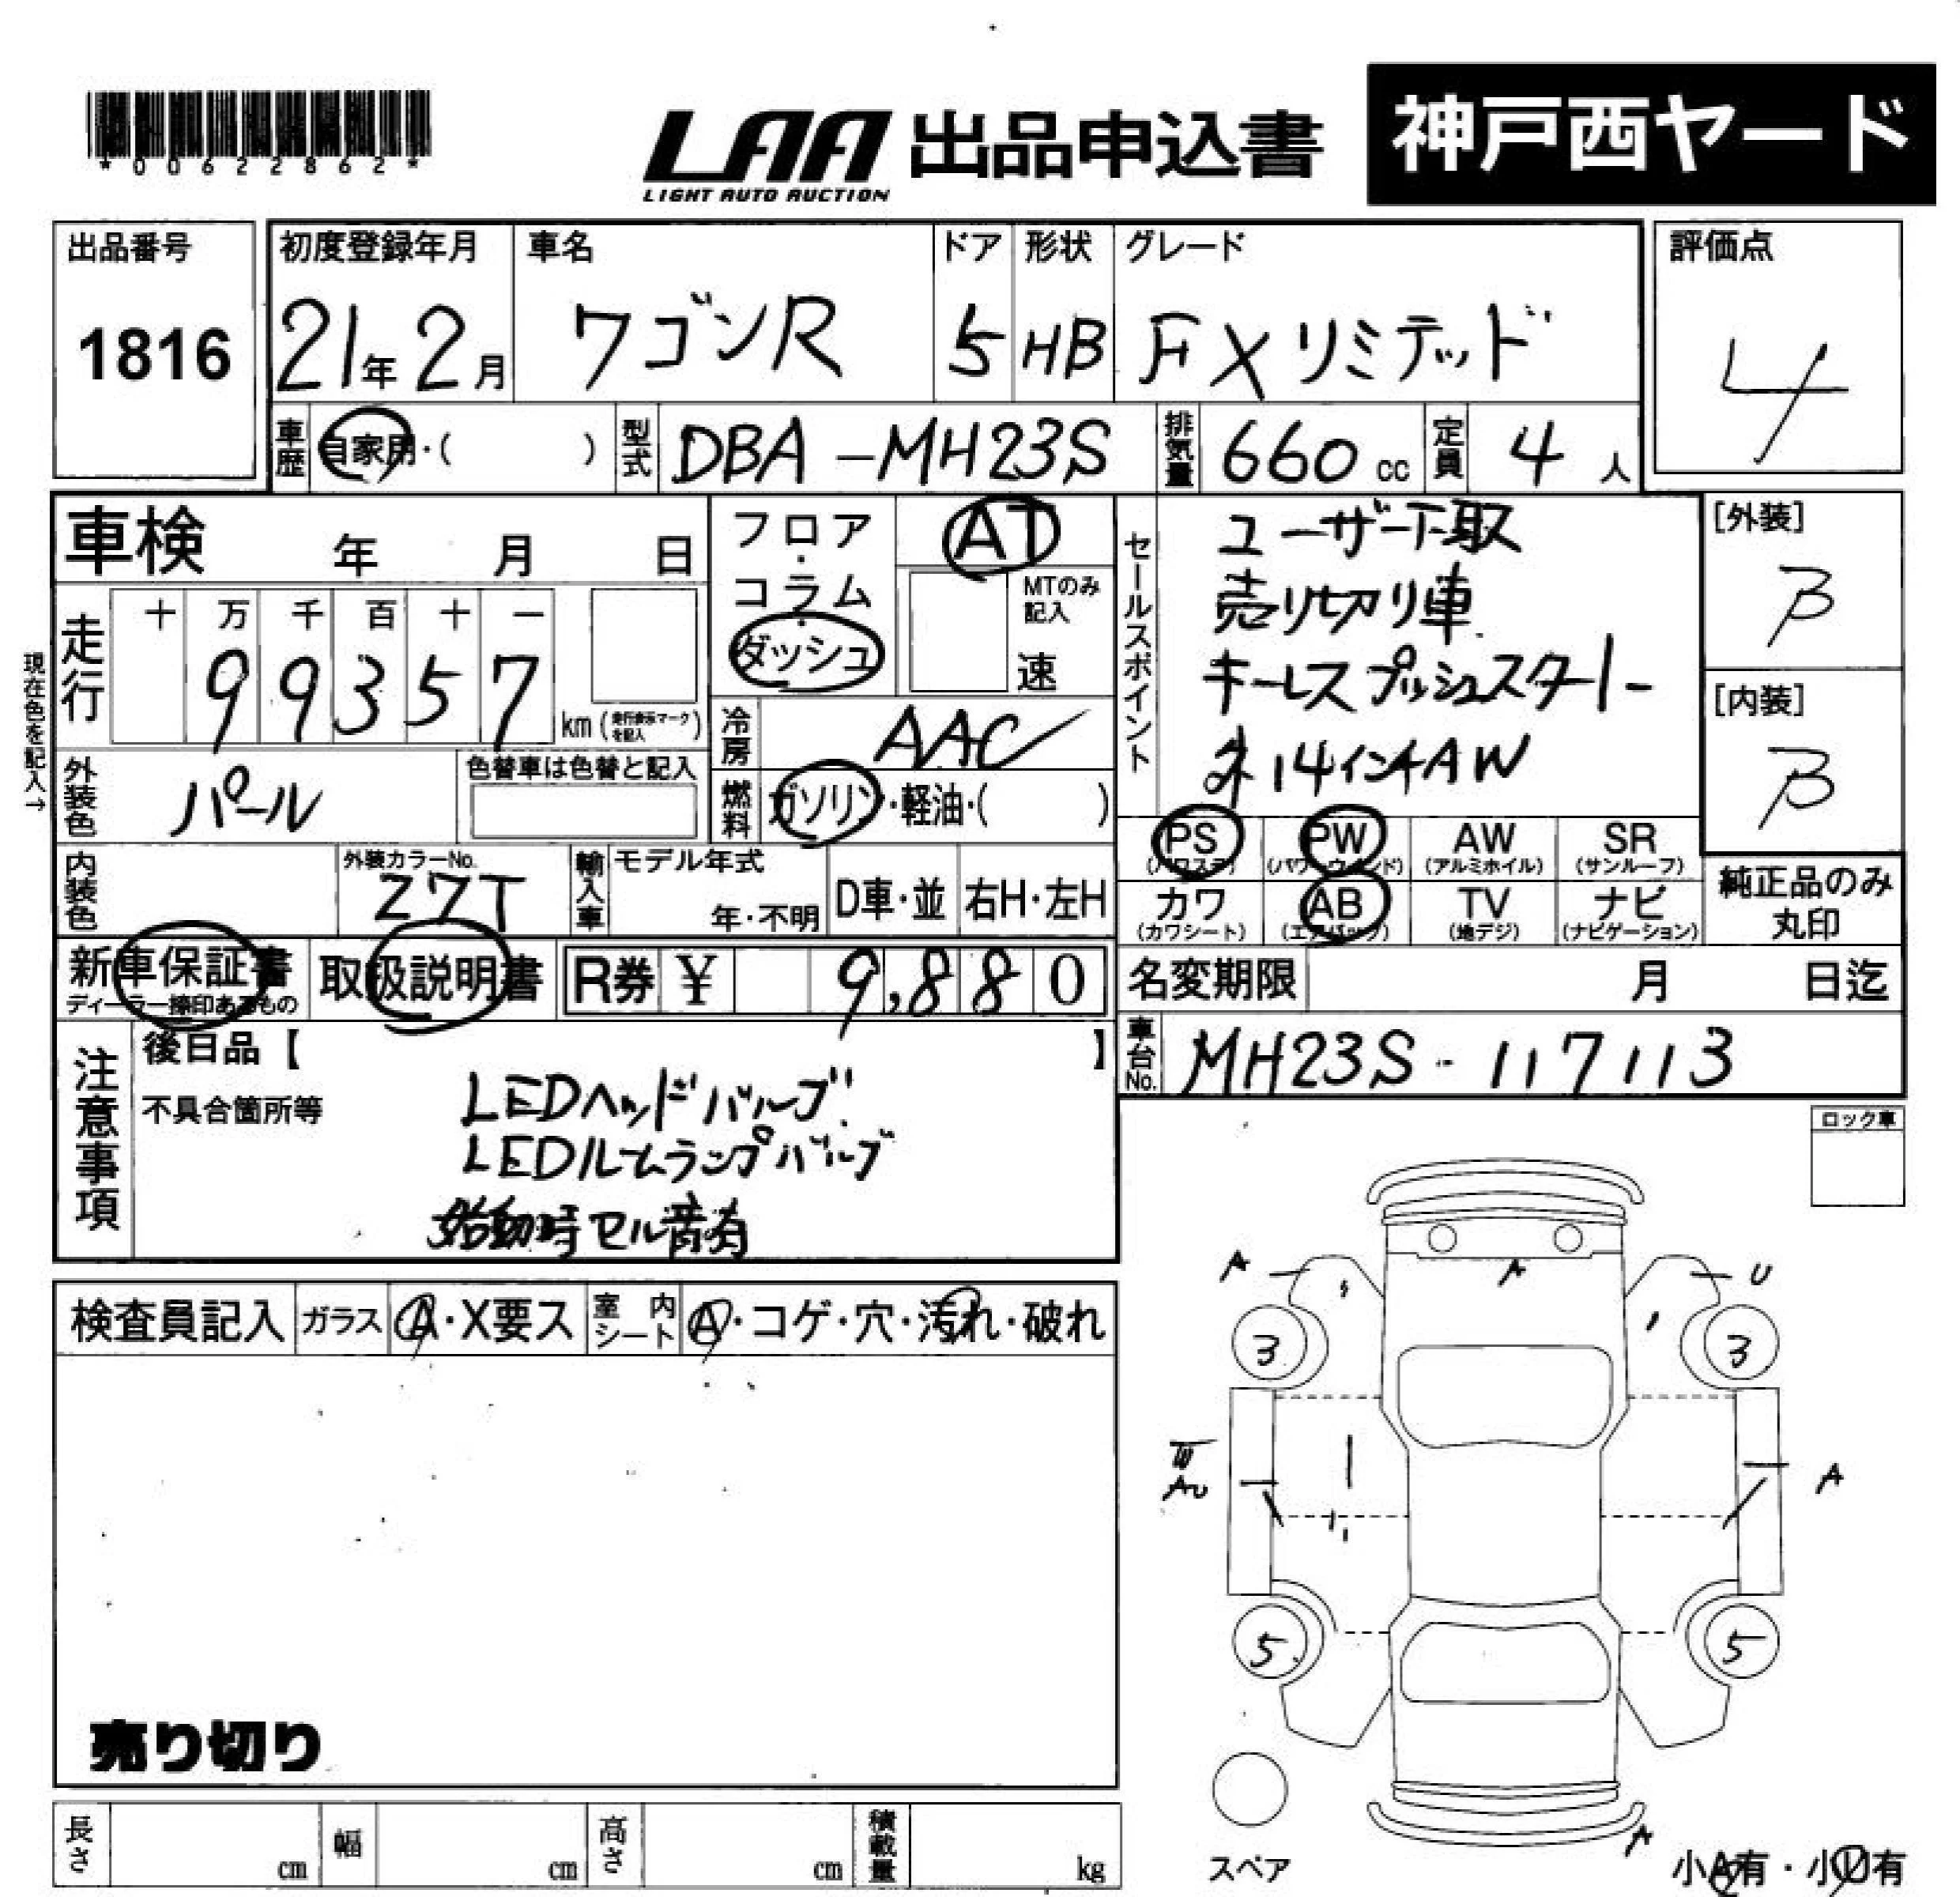 *00622862*
LAA 出品申込書 神戸西ヤード
LIGHT AUTO AUCTION
出品番号 初度登録年月 車名 ドア 形状 グレード 評価点
1816 21年 2月 ワゴンR 5 HB FXリミテッド 4
車歴 自家用・( ) 型式 DBA-MH23S 排気量 660cc 定員 4人
車検 年 月 日
フロア・コラム・ダッシュ AT
MTのみ記入 速
現在色を記入→
走行 十 万 千 百 十 一
99357 km (走行表示マークを記入)
冷房 AAC
外装色 パール 色替車は色替と記入
燃料 ガソリン・軽油・( )
セールスポイント
ユーザー下取
売り切り車
キーレスプッシュスタート
14インチAW
[外装]
B
[内装]
B
PS (パワステ) PW (パワーウィンド) AW (アルミホイル) SR (サンルーフ)
カワ (カワシート) AB (エアバッグ) TV (地デジ) ナビ (ナビゲーション)
純正品のみ
丸印
内装色 外装カラーNo. Z7T 輸入車 モデル年式 年・不明 D車・並 右H・左H
新車保証書 取扱説明書 R券 ¥ 9,880
ディーラー捺印あるもの
名変期限 月 日迄
車台No. MH23S-117113
注意事項
後日品【 】
不具合箇所等
LEDヘッドバルブ
LEDルームランプバルブ
始動時セル音有
ロック車
検査員記入 ガラス A・X要ス 室内シート A・コゲ・穴・汚れ・破れ
A A U
3 3
W
AU A
5 5
売り切り
A
スペア 小A有・小U有
長さ cm 幅 cm 高さ cm 積載量 kg